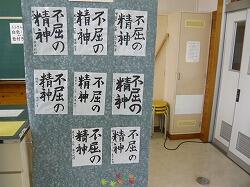 不屈の
精神
不屈の
精神
不屈の
精神
不屈の
精神
不屈の
精神
不屈の
精神
不屈の
精神
不屈の
精神
不屈の
精神